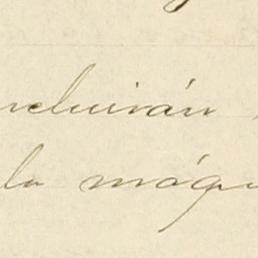 ncluirán
la máqu